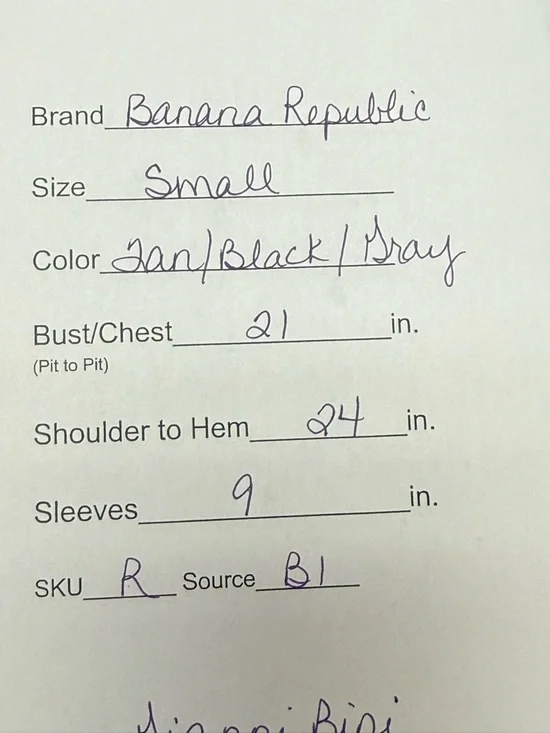 Brand Banana Republic
Size Small
Color Tan/Black/Gray
Bust/Chest 21 in.
(Pit to Pit)
Shoulder to Hem 24 in.
Sleeves 9 in.
SKU R Source B1
Gianni Bini